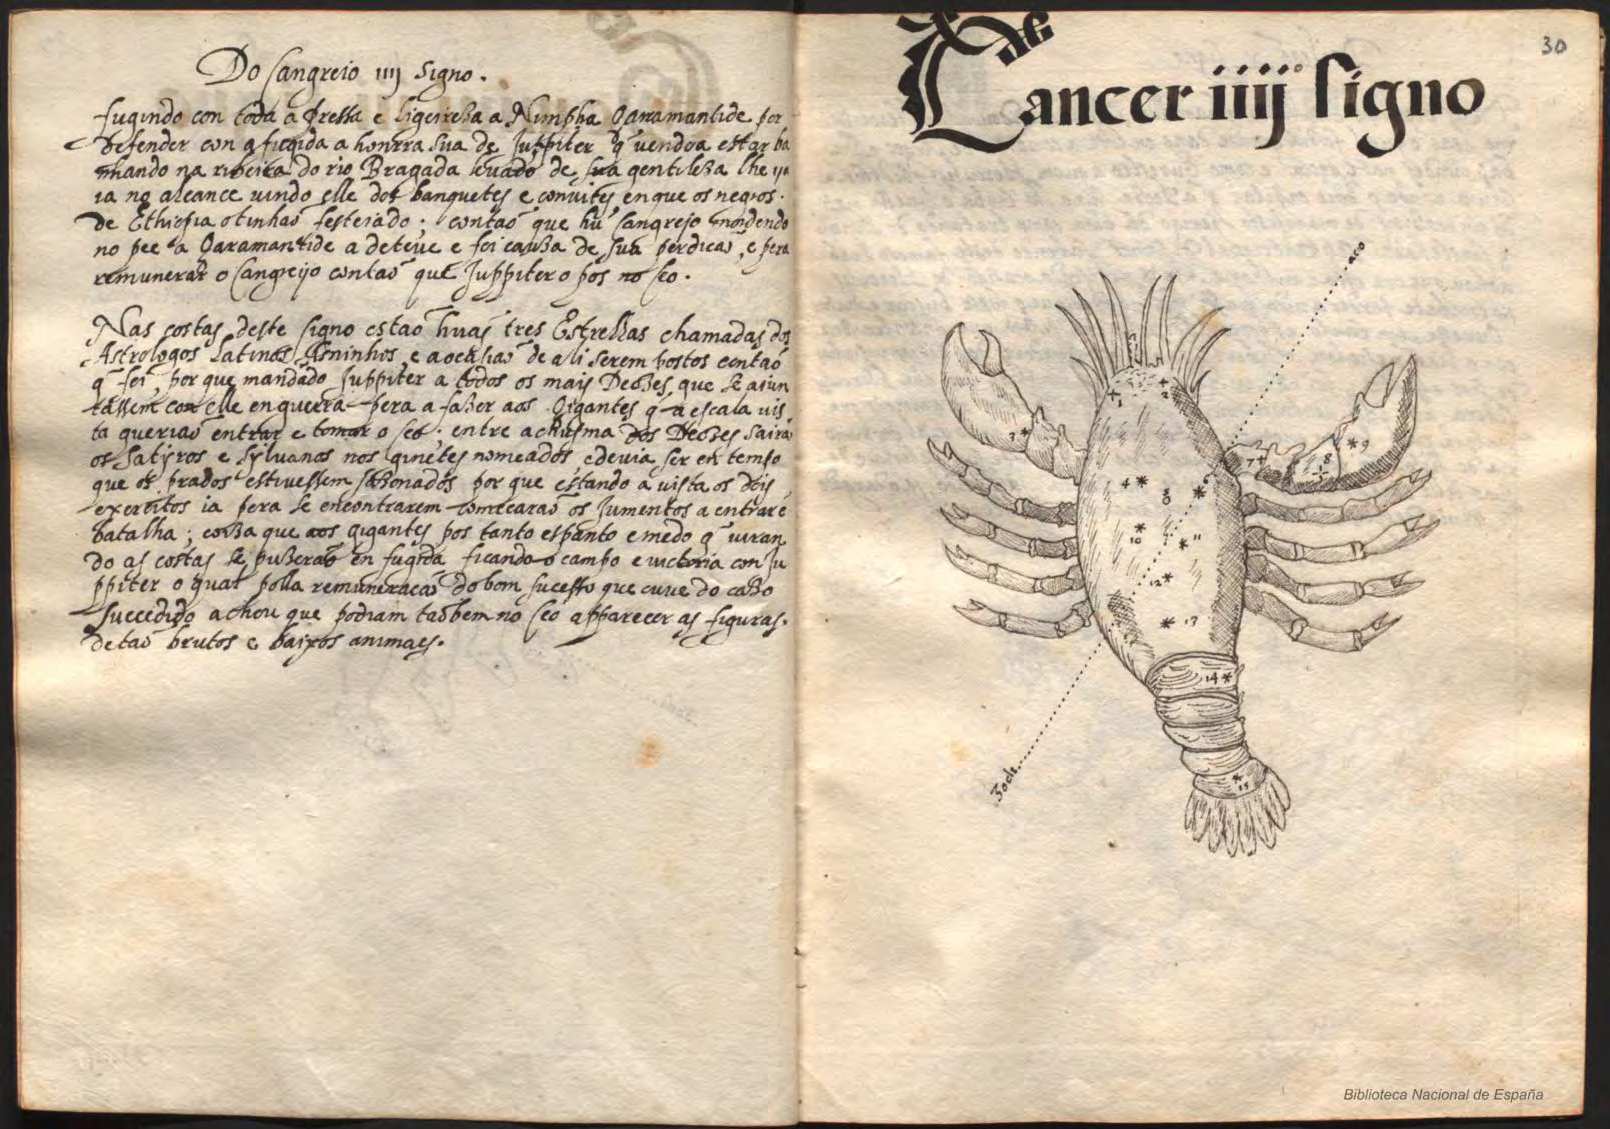 Do Cangreio iiij Signo.
fugindo con toda a pressa e ligeireza a Nimpha Garamantide por
defender con a fugida a honrra sua de Juppiter q̃ vendoa estar ba
nhando na ribeira do rio Bragada leuado de sua gentileza lhe ya
ia no alcance vindo elle dos banquetes e conuites en que os negros
de Ethiopia o tinhaõ festeiado; contaõ que hũ Cangrejo mordendo
no pee a Garamantide a deteue e foi cauza de sua perdicaõ, e pera
remunerar o Cangreijo contaõ que Juppiter o pos no Ceo.
Nas costas deste signo estaõ huas tres Estrellas chamadas dos
Astrologos Latinos Asninhos, e a ocasiaõ de ali serem postos contaõ
q̃ foi, por que mandado Juppiter a todos os mais Deozes que se aiun
tassem con elle en guerra pera a fazer aos Gigantes q̃ a escala vis
ta queriaõ entrar e tomar o Ceo; entre a chusma dos Deozes sairaõ
os Satyros e Syluanos nos ginetes nomeados, e deuia ser en tempo
que os prados estiuessem sazonados por que estando a vista os dois
exercitos ia pera se encontrarem comecaraõ os Jumentos a entrar ẽ
batalha; couza que aos gigantes pos tanto espanto e medo q̃ viran
do as costas se puzeraõ en fugida ficando o campo e victoria con Ju
ppiter o qual polla remuneracaõ do bom sucesso que ouue do cazo
succedido achou que podiam taõbem no Ceo apparecer as figuras
de taõ brutos e baixos animaes.
30
Cancer iiij signo
aco
1
2
3
7
8
9
4
10
11
12
13
14
15
Zodi
Biblioteca Nacional de España